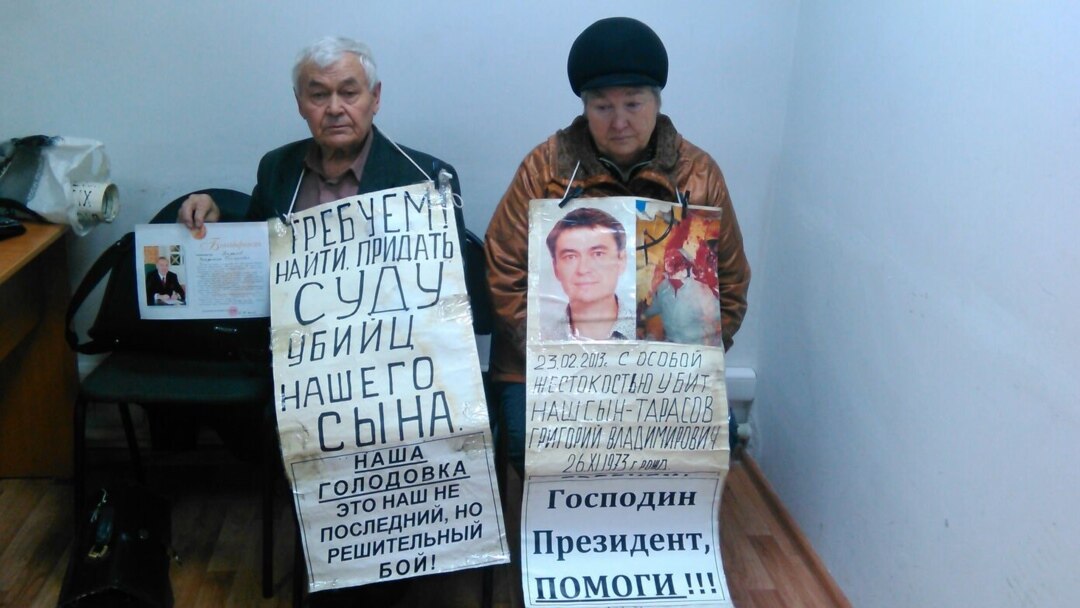 Благодарность
ТРЕБУЕМ!
НАЙТИ. ПРИДАТЬ
СУДУ
УБИЙЦ
НАШЕГО
СЫНА.
НАША
ГОЛОДОВКА
ЭТО НАШ НЕ
ПОСЛЕДНИЙ, НО
РЕШИТЕЛЬНЫЙ
БОЙ!
23.02.2013г. С ОСОБОЙ
ЖЕСТОКОСТЬЮ УБИТ
НАШ СЫН-ТАРАСОВ
ГРИГОРИЙ ВЛАДИМИРОВИЧ
26.XI.1973 г.рожд
Господин
Президент,
ПОМОГИ !!!